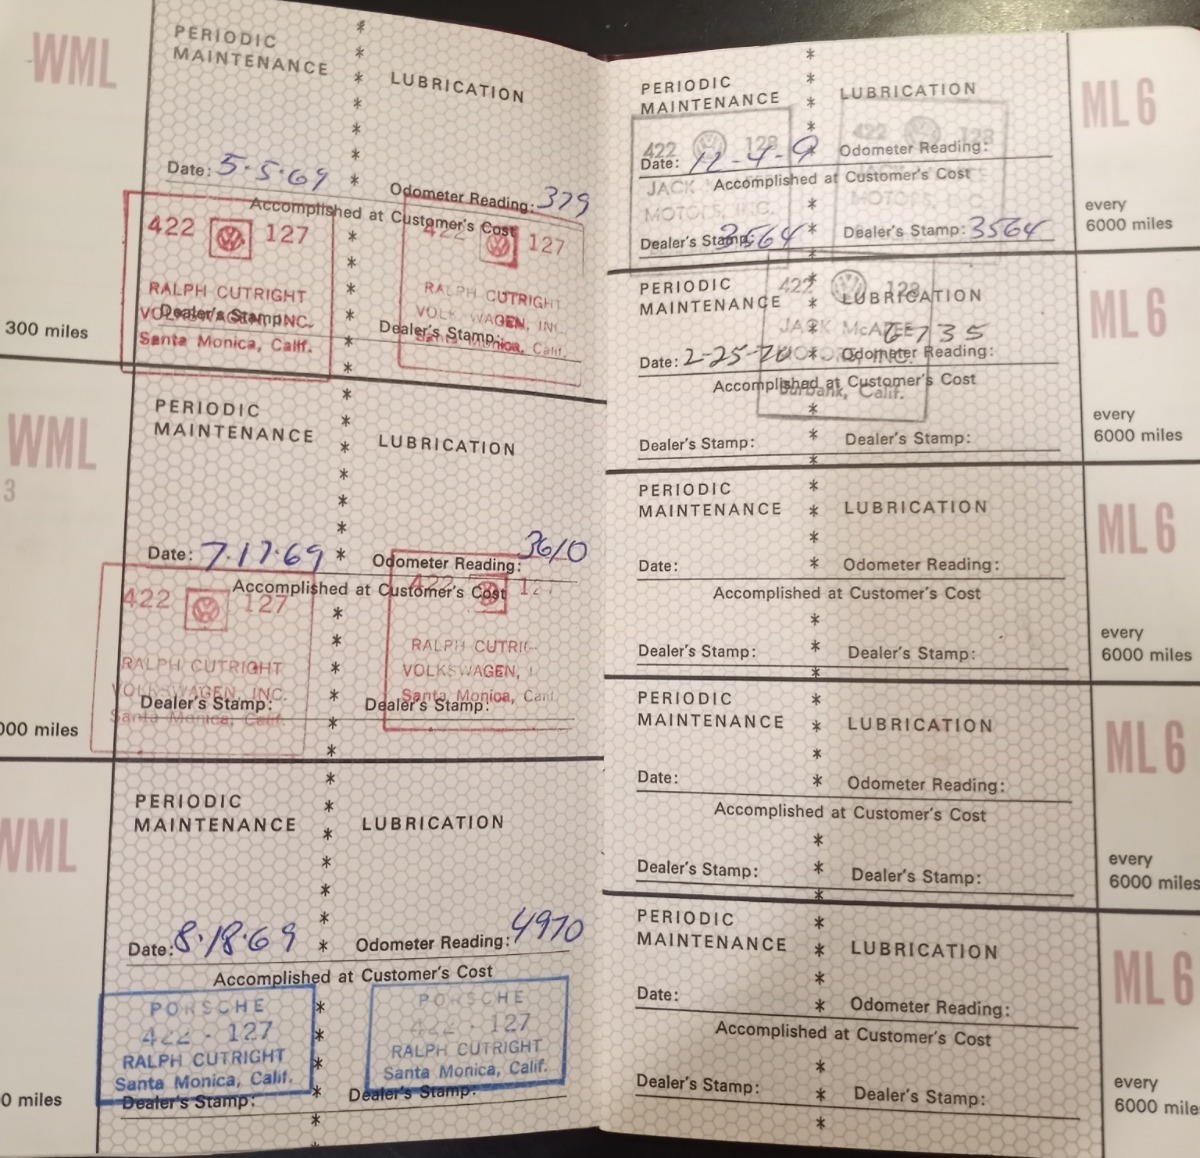 WML
PERIODIC
MAINTENANCE
LUBRICATION
Date: 5-5-69
Odometer Reading: 379
Accomplished at Customer's Cost
422 127
RALPH CUTRIGHT
VOLKSWAGEN, INC.
Santa Monica, Calif.
Dealer's Stamp:
422 127
RALPH CUTRIGHT
VOLKSWAGEN, INC.
Santa Monica, Calif.
Dealer's Stamp:
300 miles
WML
3
PERIODIC
MAINTENANCE
LUBRICATION
Date: 7-17-69
Odometer Reading: 3610
Accomplished at Customer's Cost
422 127
RALPH CUTRIGHT
VOLKSWAGEN, INC.
Santa Monica, Calif.
Dealer's Stamp:
422
RALPH CUTRI
VOLKSWAGEN,
Santa Monica, Calif
Dealer's Stamp:
000 miles
WML
PERIODIC
MAINTENANCE
LUBRICATION
Date: 8-18-69
Odometer Reading: 4970
Accomplished at Customer's Cost
PORSCHE
422 - 127
RALPH CUTRIGHT
Santa Monica, Calif.
Dealer's Stamp:
PORSCHE
422 - 127
RALPH CUTRIGHT
Santa Monica, Calif.
Dealer's Stamp:
0 miles
PERIODIC
MAINTENANCE
LUBRICATION
ML 6
422 128
422 128
Date: 12-4-9
Odometer Reading:
Accomplished at Customer's Cost
JACK
MOTORS, INC.
MOTORS,
Dealer's Stamp: 3564
Dealer's Stamp: 3564
every
6000 miles
PERIODIC
MAINTENANCE
LUBRICATION
ML 6
422 128
JACK McAFEE
MOTORS, INC.
Burbank, Calif.
6735
Date: 2-25-70
Odometer Reading:
Accomplished at Customer's Cost
Dealer's Stamp:
Dealer's Stamp:
every
6000 miles
PERIODIC
MAINTENANCE
LUBRICATION
ML 6
Date:
Odometer Reading:
Accomplished at Customer's Cost
Dealer's Stamp:
Dealer's Stamp:
every
6000 miles
PERIODIC
MAINTENANCE
LUBRICATION
ML 6
Date:
Odometer Reading:
Accomplished at Customer's Cost
Dealer's Stamp:
Dealer's Stamp:
every
6000 miles
PERIODIC
MAINTENANCE
LUBRICATION
ML 6
Date:
Odometer Reading:
Accomplished at Customer's Cost
Dealer's Stamp:
Dealer's Stamp:
every
6000 miles